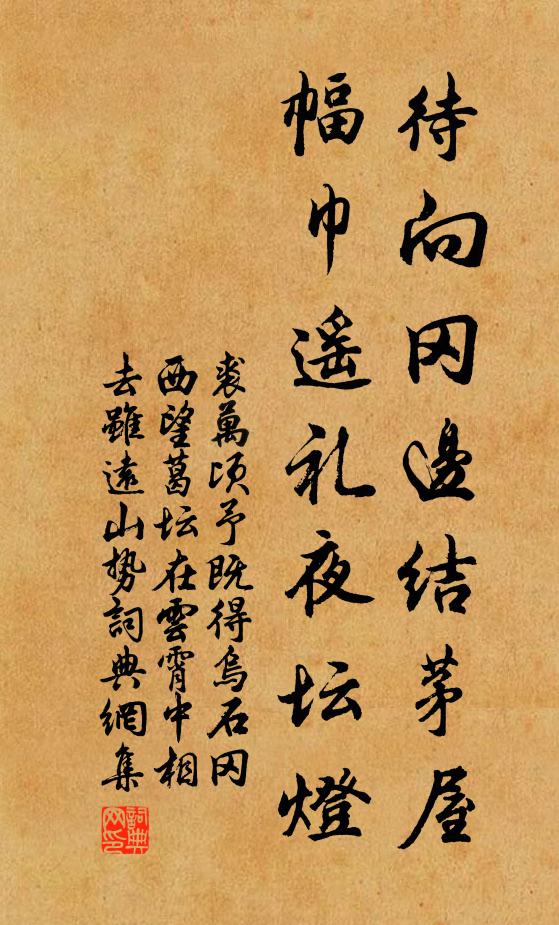 待向冈邊结茅屋
幅巾遥礼夜坛燈
裘萬顷予既得乌石冈
西望葛坛在雲霄中相
去雖遠山势詞典網集
詞典网印